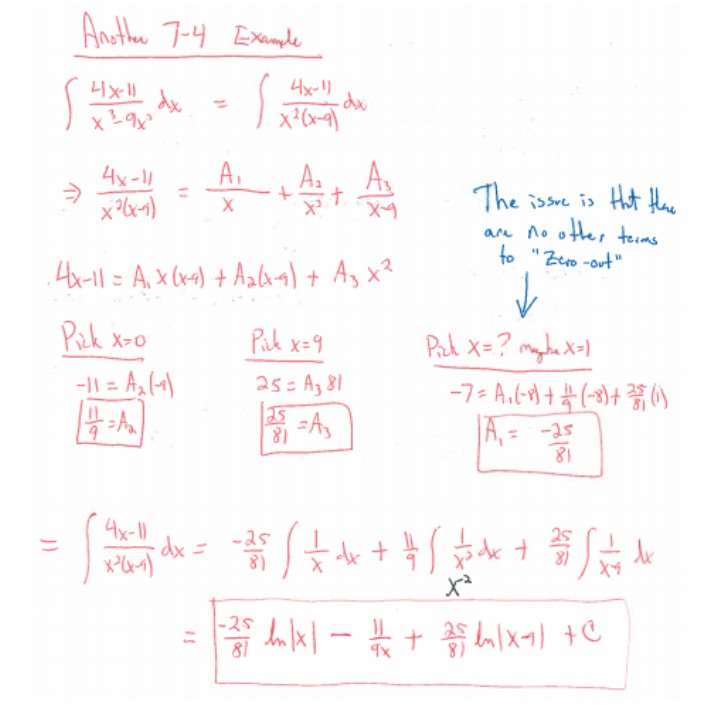 Another 7-4 Example
∫ (4x-11)/(x³-9x²) dx = ∫ (4x-11)/(x²(x-9)) dx
⇒ (4x-11)/(x²(x-9)) = A₁/x + A₂/x² + A₃/(x-9)
The issue is that there
are no other terms
to "Zero-out"
4x-11 = A₁ x(x-9) + A₂(x-9) + A₃ x²
Pick x=0
-11 = A₂(-9)
11/9 = A₂
Pick x=9
25 = A₃ 81
25/81 = A₃
Pick x=? maybe x=1
-7 = A₁(-8) + 11/9 (-8) + 25/81 (1)
A₁ = -25/81
= ∫ (4x-11)/(x²(x-9)) dx = -25/81 ∫ 1/x dx + 11/9 ∫ 1/x² dx + 25/81 ∫ 1/(x-9) dx
x²
= -25/81 ln|x| - 11/9x + 25/81 ln|x-9| + C